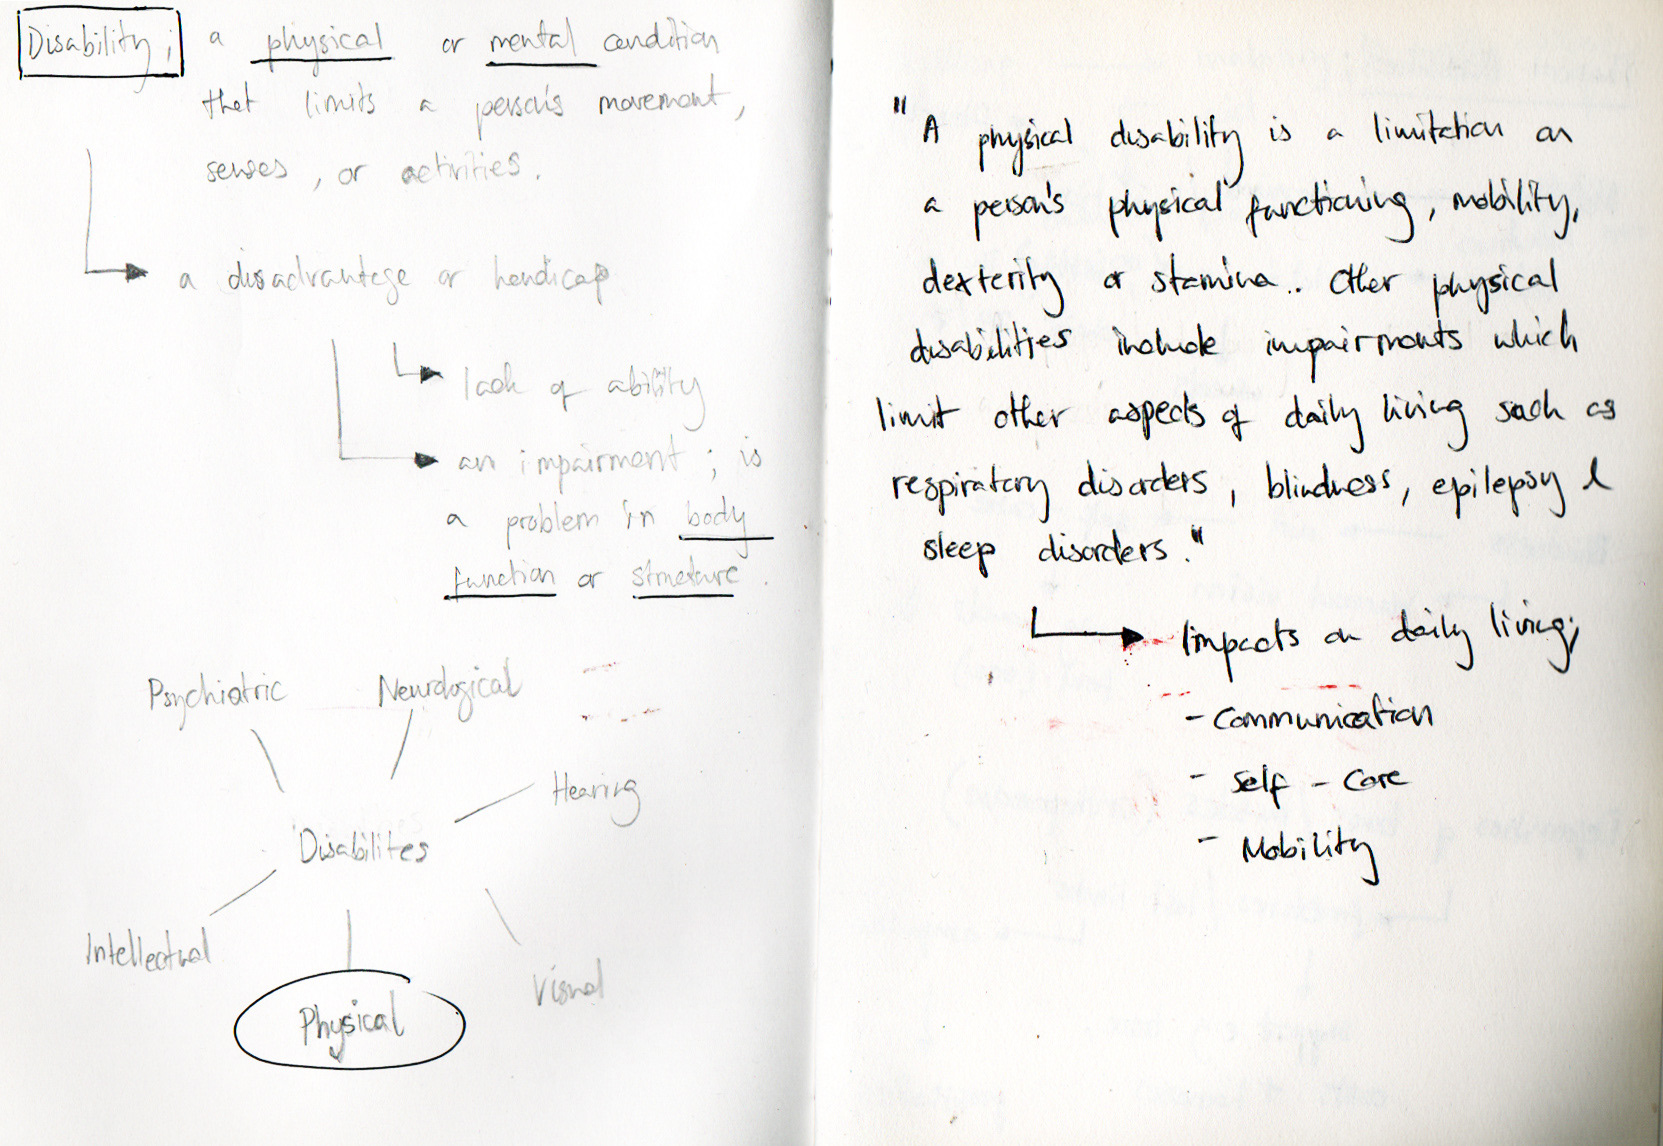 Disability; a physical or mental condition
that limits a person's movement,
senses, or activities.
a disadvantage or handicap
lack of ability
an impairment; is
a problem in body
function or structure.
Psychiatric Neurological
Hearing
Disabilites
Intellectual
Visual
Physical
"A physical disability is a limitation on
a person's physical functioning, mobility,
dexterity or stamina.. Other physical
disabilities include impairments which
limit other aspects of daily living such as
respiratory disorders, blindness, epilepsy &
sleep disorders."
Impacts on daily living;
- Communication
- Self - Care
- Mobility